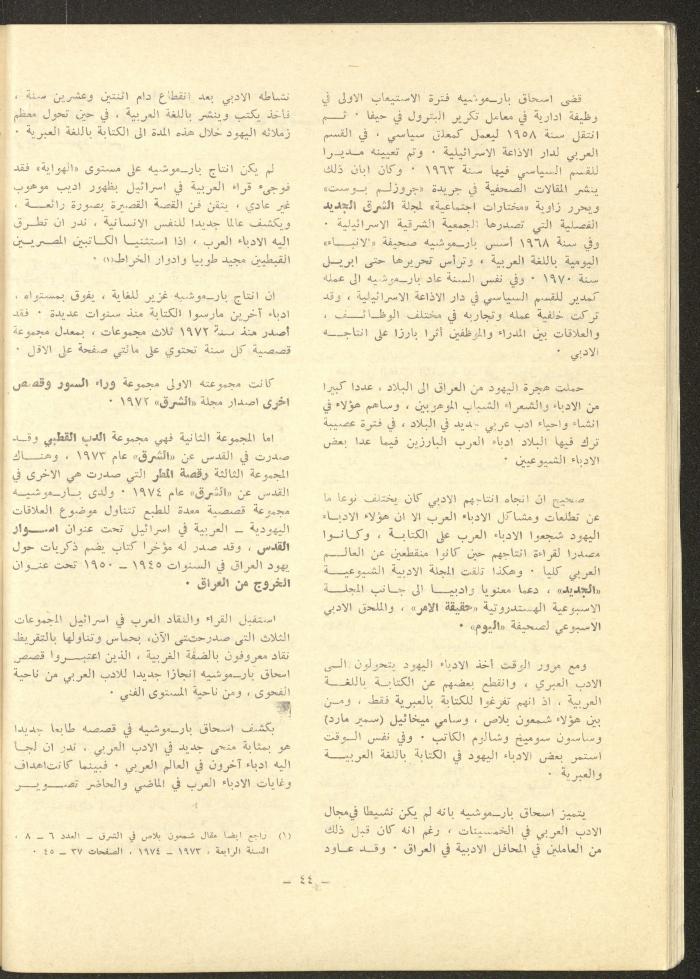 قضى اسحاق بارـموشيه فترة الاستيعاب الاولى في
وظيفة ادارية في معامل تكرير البترول في حيفا ٠ ثـــم
انتقل سنة ١٩٥٨ ليعمل كمعلق سياسي ، في القسم
العربي لدار الاذاعة الاسرائيلية ٠ وتم تعيينه مديـرا
للقسم السياسي فيها سنة ١٩٦٣ ٠ وكان ابان ذلك
ينشر المقالات الصحفية في جريدة «جروزلـم بـوست»
ويحرر زاوية «مختارات اجتماعية» لمجلة الشرق الجديد
الفصلية التي تصدرها الجمعية الشرقية الاسرائيلية ٠
وفي سنة ١٩٦٨ أسس بارـموشيه صحيفة «الانبـاء»
اليومية باللغة العربية ، وترأس تحريرها حتى ابريـل
سنة ١٩٧٠ ٠ وفي نفس السنة عاد بارـموشيه الى عمله
كمدير للقسم السياسي في دار الاذاعة الاسرائيلية ، وقد
تركت خلفية عمله وتجاربه في مختلف الوظـائـف ،
والعلاقات بين المدراء والموظفين أثرا بارزا على انتاجــه
الادبي ٠
حملت هجرة اليهود من العراق الى البلاد ، عددا كبيرا
من الادباء والشعراء الشباب الموهوبين ، وساهم هؤلاء في
انشاء واحياء ادب عربي جديد في البلاد ، في فترة عصيبة
ترك فيها البلاد ادباء العرب البارزين فيما عدا بعض
الادباء الشيوعيين ٠
صحيح ان اتجاه انتاجهم الادبي كان يختلف نوعا ما
عن تطلعات ومشاكل الادباء العرب الا ان هؤلاء الادبـاء
اليهود شجعوا الادباء العرب على الكتابـة ، وكـانـوا
مصدرا لقراءة انتاجهم حين كانوا منقطعين عن العالـــم
العربي كليا ٠ وهكذا تلقت المجلة الادبية الشيوعيـــة
«الجديد» ، دعما معنويا وادبيـا الى جـانب المجلـــة
الاسبوعية الهستدروتية «حقيقة الامر» ، والملحق الادبي
الاسبوعي لصحيفة «اليوم» ٠
ومع مرور الوقت أخذ الادباء اليهود يتحولون الـى
الادب العبري ، وانقطع بعضهم عن الكتابـة باللغـــة
العربية ، اذ انهم تفرغوا للكتابة بالعبرية فقط ، ومـن
بين هؤلاء شمعون بلاص ، وسامي ميخائيل (سمير مارد)
وساسون سوميخ وشالوم الكاتب ٠ وفي نفس الـوقت
استمر بعض الادباء اليهود في الكتابة باللغة العربيـــة
والعبرية ٠
يتميز اسحاق بارـموشيه بانه لم يكن نشيطا في مجال
الادب العربي في الخمسينات ، رغم انه كان قبل ذلك
من العاملين في المحافل الادبية في العراق ٠ وقـد عـاود
نشاطه الادبي بعد انقطاع دام اثنتين وعشرين سنة ،
فأخذ يكتب وينشر باللغة العربية ، في حين تحول معظم
زملائه اليهود خلال هذه المدة الى الكتابة باللغة العبرية ٠
لم يكن انتاج بارـموشيه على مستوى «الهواية» فقد
فوجىء قراء العربية في اسرائيل بظهور اديب موهوب
غير عادي ، يتقن فن القصة القصيرة بصورة رائعـة ،
ويكشف عالما جديدا للنفس الانسانية ، ندر ان تطـرق
اليه الادباء العرب ، اذا استثنينا الكـاتبين المصـريـين
القبطيين مجيد طوبيا وادوار الخراط(١) ٠
ان انتاج بارـموشيه غزير للغاية ، يفوق بمستواه ،
ادباء آخرين مارسوا الكتابة منذ سنوات عديدة ٠ فقد
أصدر منذ سنة ١٩٧٢ ثلاث مجموعات ، بمعدل مجموعة
قصصية كل سنة تحتوي على مائتي صفحة على الاقل ٠
كانت مجموعته الاولى مجموعة وراء السور وقصص
اخرى اصدار مجلة «الشرق» ١٩٧٢ ٠
اما المجموعة الثانية فهي مجموعة الدب القطبي وقـد
صدرت في القدس عن «الشرق» عام ١٩٧٣ ، وهنـاك
المجموعة الثالثة رقصة المطر التي صدرت هي الاخرى في
القدس عن «الشرق» عام ١٩٧٤ ٠ ولدى بـارـموشيـه
مجموعة قصصية معدة للطبع تتناول موضوع العلاقات
اليهودية ـ العربية في اسرائيل تحت عنوان اســوار
القدس ، وقد صدر له مؤخرا كتاب يضم ذكريات حول
يهود العراق في السنوات ١٩٤٥ ـ ١٩٥٠ تحت عنـوان
الخروج من العراق ٠
استقبل القراء والنقاد العرب في اسرائيل المجموعات
الثلاث التى صدرحتى الآن، بحماس وتناولها بالتقريظ
نقاد معروفون بالضفة الغربية ، الذين اعتبـروا قصص
اسحاق بارـموشيه انجازا جديدا للادب العربي من ناحية
الفحوى ، ومن ناحية المستوى الفني ٠
يكشف اسحاق بارـموشيه في قصصه طابعا جديدا
هو بمثابة منحى جديد في الادب العربي ، ندر ان لجـا
اليه ادباء آخرون في العالم العربي ٠ فبينما كانت اهداف
وغايات الادباء العرب في الماضي والحاضر تصـــويـــر
(١) راجع ايضا مقال شمعون بلاص في الشرق ـ العدد ٦ ـ ٨ ،
السنة الرابعة ، ١٩٧٣ ـ ١٩٧٤ ، الصفحات ٣٧ ـ ٤٥ ٠
ـ ٤٤ ـ